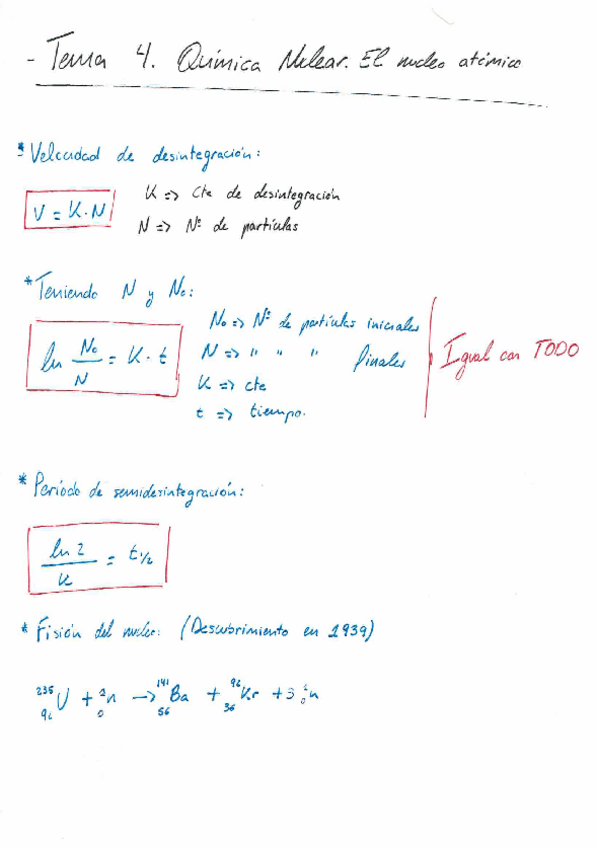 - Tema 4. Química Nulear. El nucleo atómico
* Velocidad de desintegración:
V = K·N
K => Cte de desintegración
N => Nº de partículas
* Teniendo N y No:
ln No/N = K · t
No => Nº de partículas iniciales
N => " " " finales
K => cte
t => tiempo.
Igual con TODO
* Período de semidesintegración:
ln 2/K = t1/2
* Fisión del nucleo: (Descubrimiento en 1939)
²³⁵₉₂U + ¹₀n —> ¹⁴¹₅₆Ba + ⁹²₃₆Kr + 3 ¹₀n